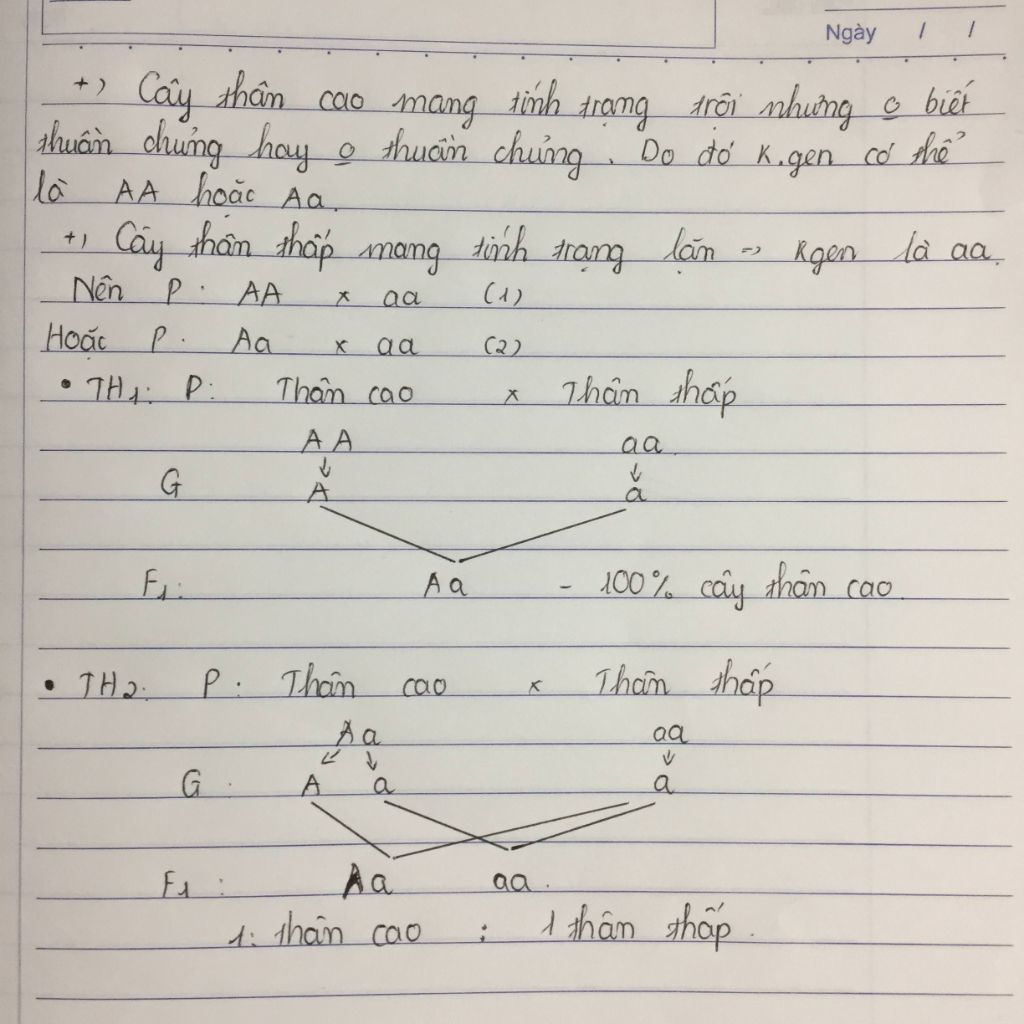 Ngày / /
+) Cây thân cao mang tính trạng trội nhưng o biết
thuần chủng hay o thuần chủng. Do đó K.gen có thể
là AA hoặc Aa.
+) Cây thân thấp mang tính trạng lặn => Kgen là aa.
Nên P: AA x aa (1)
Hoặc P: Aa x aa (2)
• TH1: P: Thân cao x Thân thấp
AA aa
↓ ↓
G A a
F1: Aa - 100% cây thân cao.
• TH2: P: Thân cao x Thân thấp
Aa aa
↙ ↘ ↓
G: A a a
F1: Aa aa.
1: thân cao : 1 thân thấp.